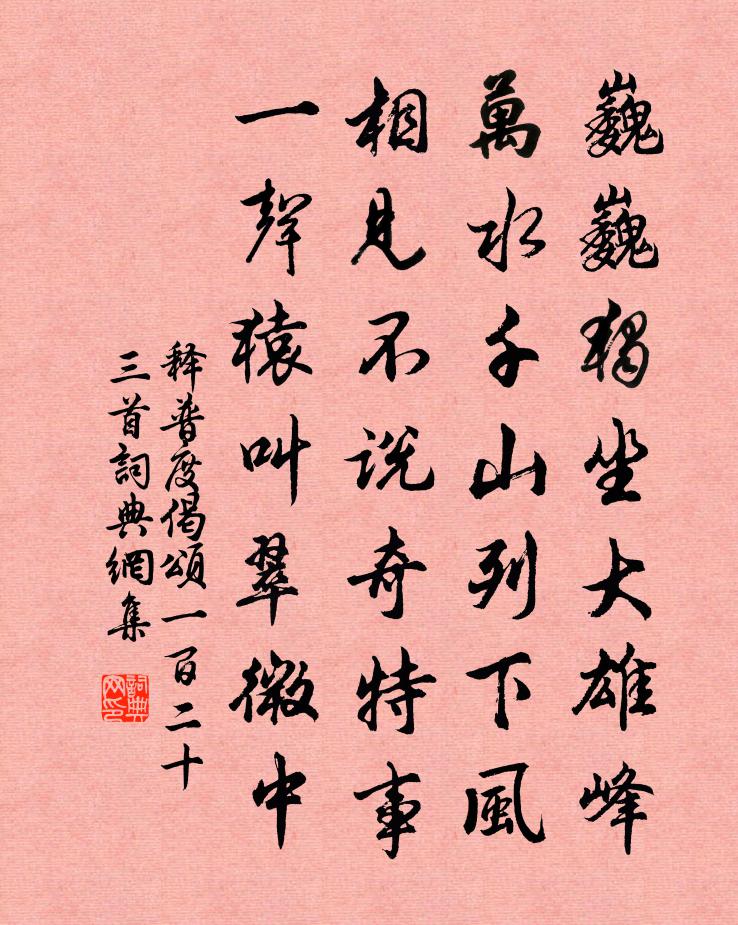 巍巍独坐大雄峰
萬水千山列下風
相見不説奇特事
一聲猿叫翠微中
释普度偈頌一百二十
三首詞典網集
詞典网印